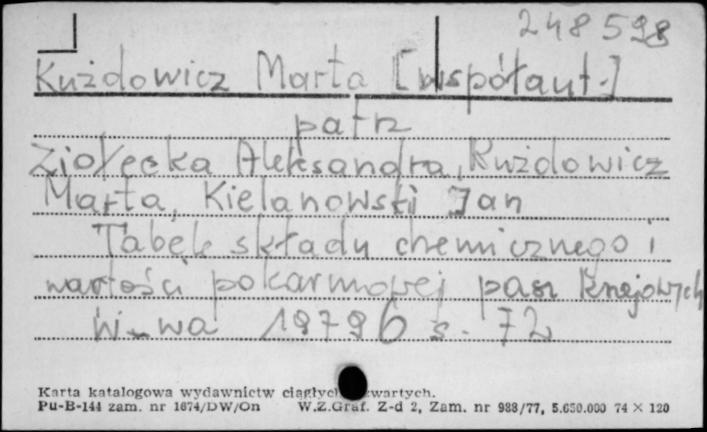 248598
Kużdowicz Marta [współaut.]
patrz
Ziołecka Aleksandra, Kużdowicz
Marta, Kielanowski Jan
Tabele składu chemicznego i
wartości pokarmowej pasz krajowych
W-wa 1979 s. 72
Karta katalogowa wydawnictw ciągłych zwartych.
Pu-B-144 zam. nr 1674/DW/On W.Z.Graf. Z-d 2, Zam. nr 988/77, 5.650.000 74 × 120